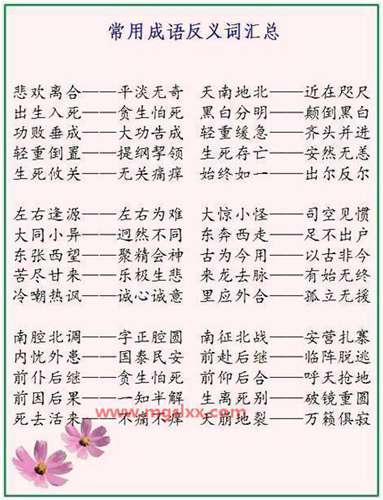 常用成语反义词汇总
悲欢离合——平淡无奇 天南地北——近在咫尺
出生入死——贪生怕死 黑白分明——颠倒黑白
功败垂成——大功告成 轻重缓急——齐头并进
轻重倒置——提纲挈领 生死存亡——安然无恙
生死攸关——无关痛痒 始终如一——出尔反尔
左右逢源——左右为难 大惊小怪——司空见惯
大同小异——迥然不同 东奔西走——足不出户
东张西望——聚精会神 古为今用——以古非今
苦尽甘来——乐极生悲 来龙去脉——有始无终
冷嘲热讽——诚心诚意 里应外合——孤立无援
南腔北调——字正腔圆 南征北战——安营扎寨
内忧外患——国泰民安 前赴后继——临阵脱逃
前仆后继——贪生怕死 前仰后合——呼天抢地
前因后果——一知半解 生离死别——破镜重圆
www.mgslxx.com
死去活来——不痛不痒 天崩地裂——万籁俱寂